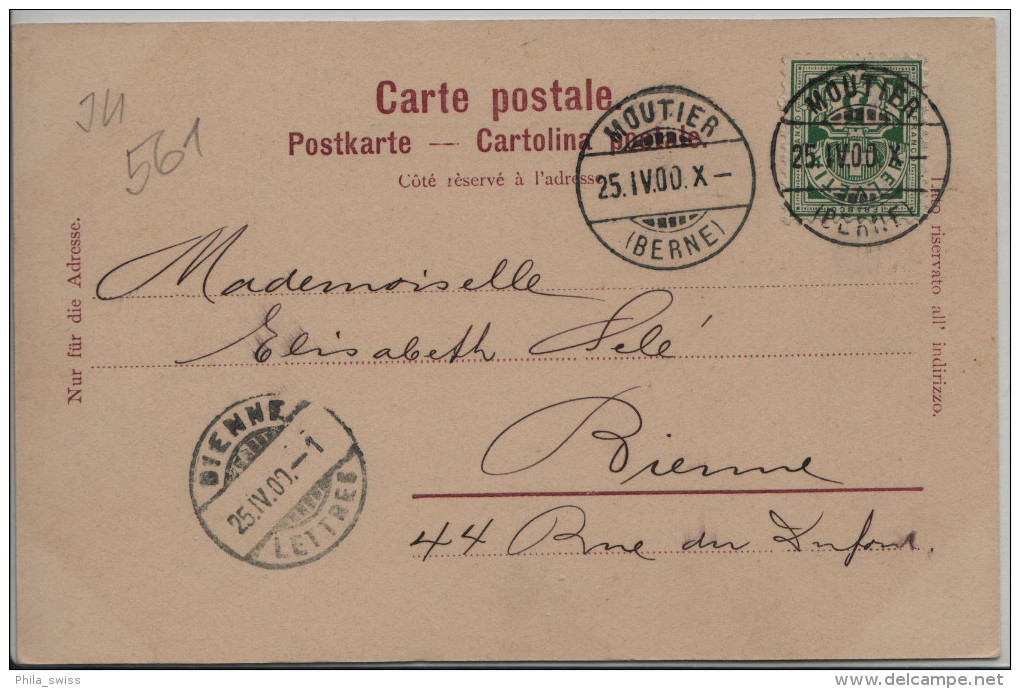 JU
561
Carte postale
Postkarte — Cartolina postale.
Côté rèservé à l'adresse
MOUTIER
25.IV.00.X–
(BERNE)
MOUTIER
25.IV.00.X–
(BERNE)
FRANCO
HELVETIA
Nur für die Adresse.
Lato riservato all' indirizzo.
Mademoiselle
Elisabeth Selé
Bienne
44 Rue du Dufour.
BIENNE
25.IV.00.–1
LETTRES
Phila_swiss
delcampe.net